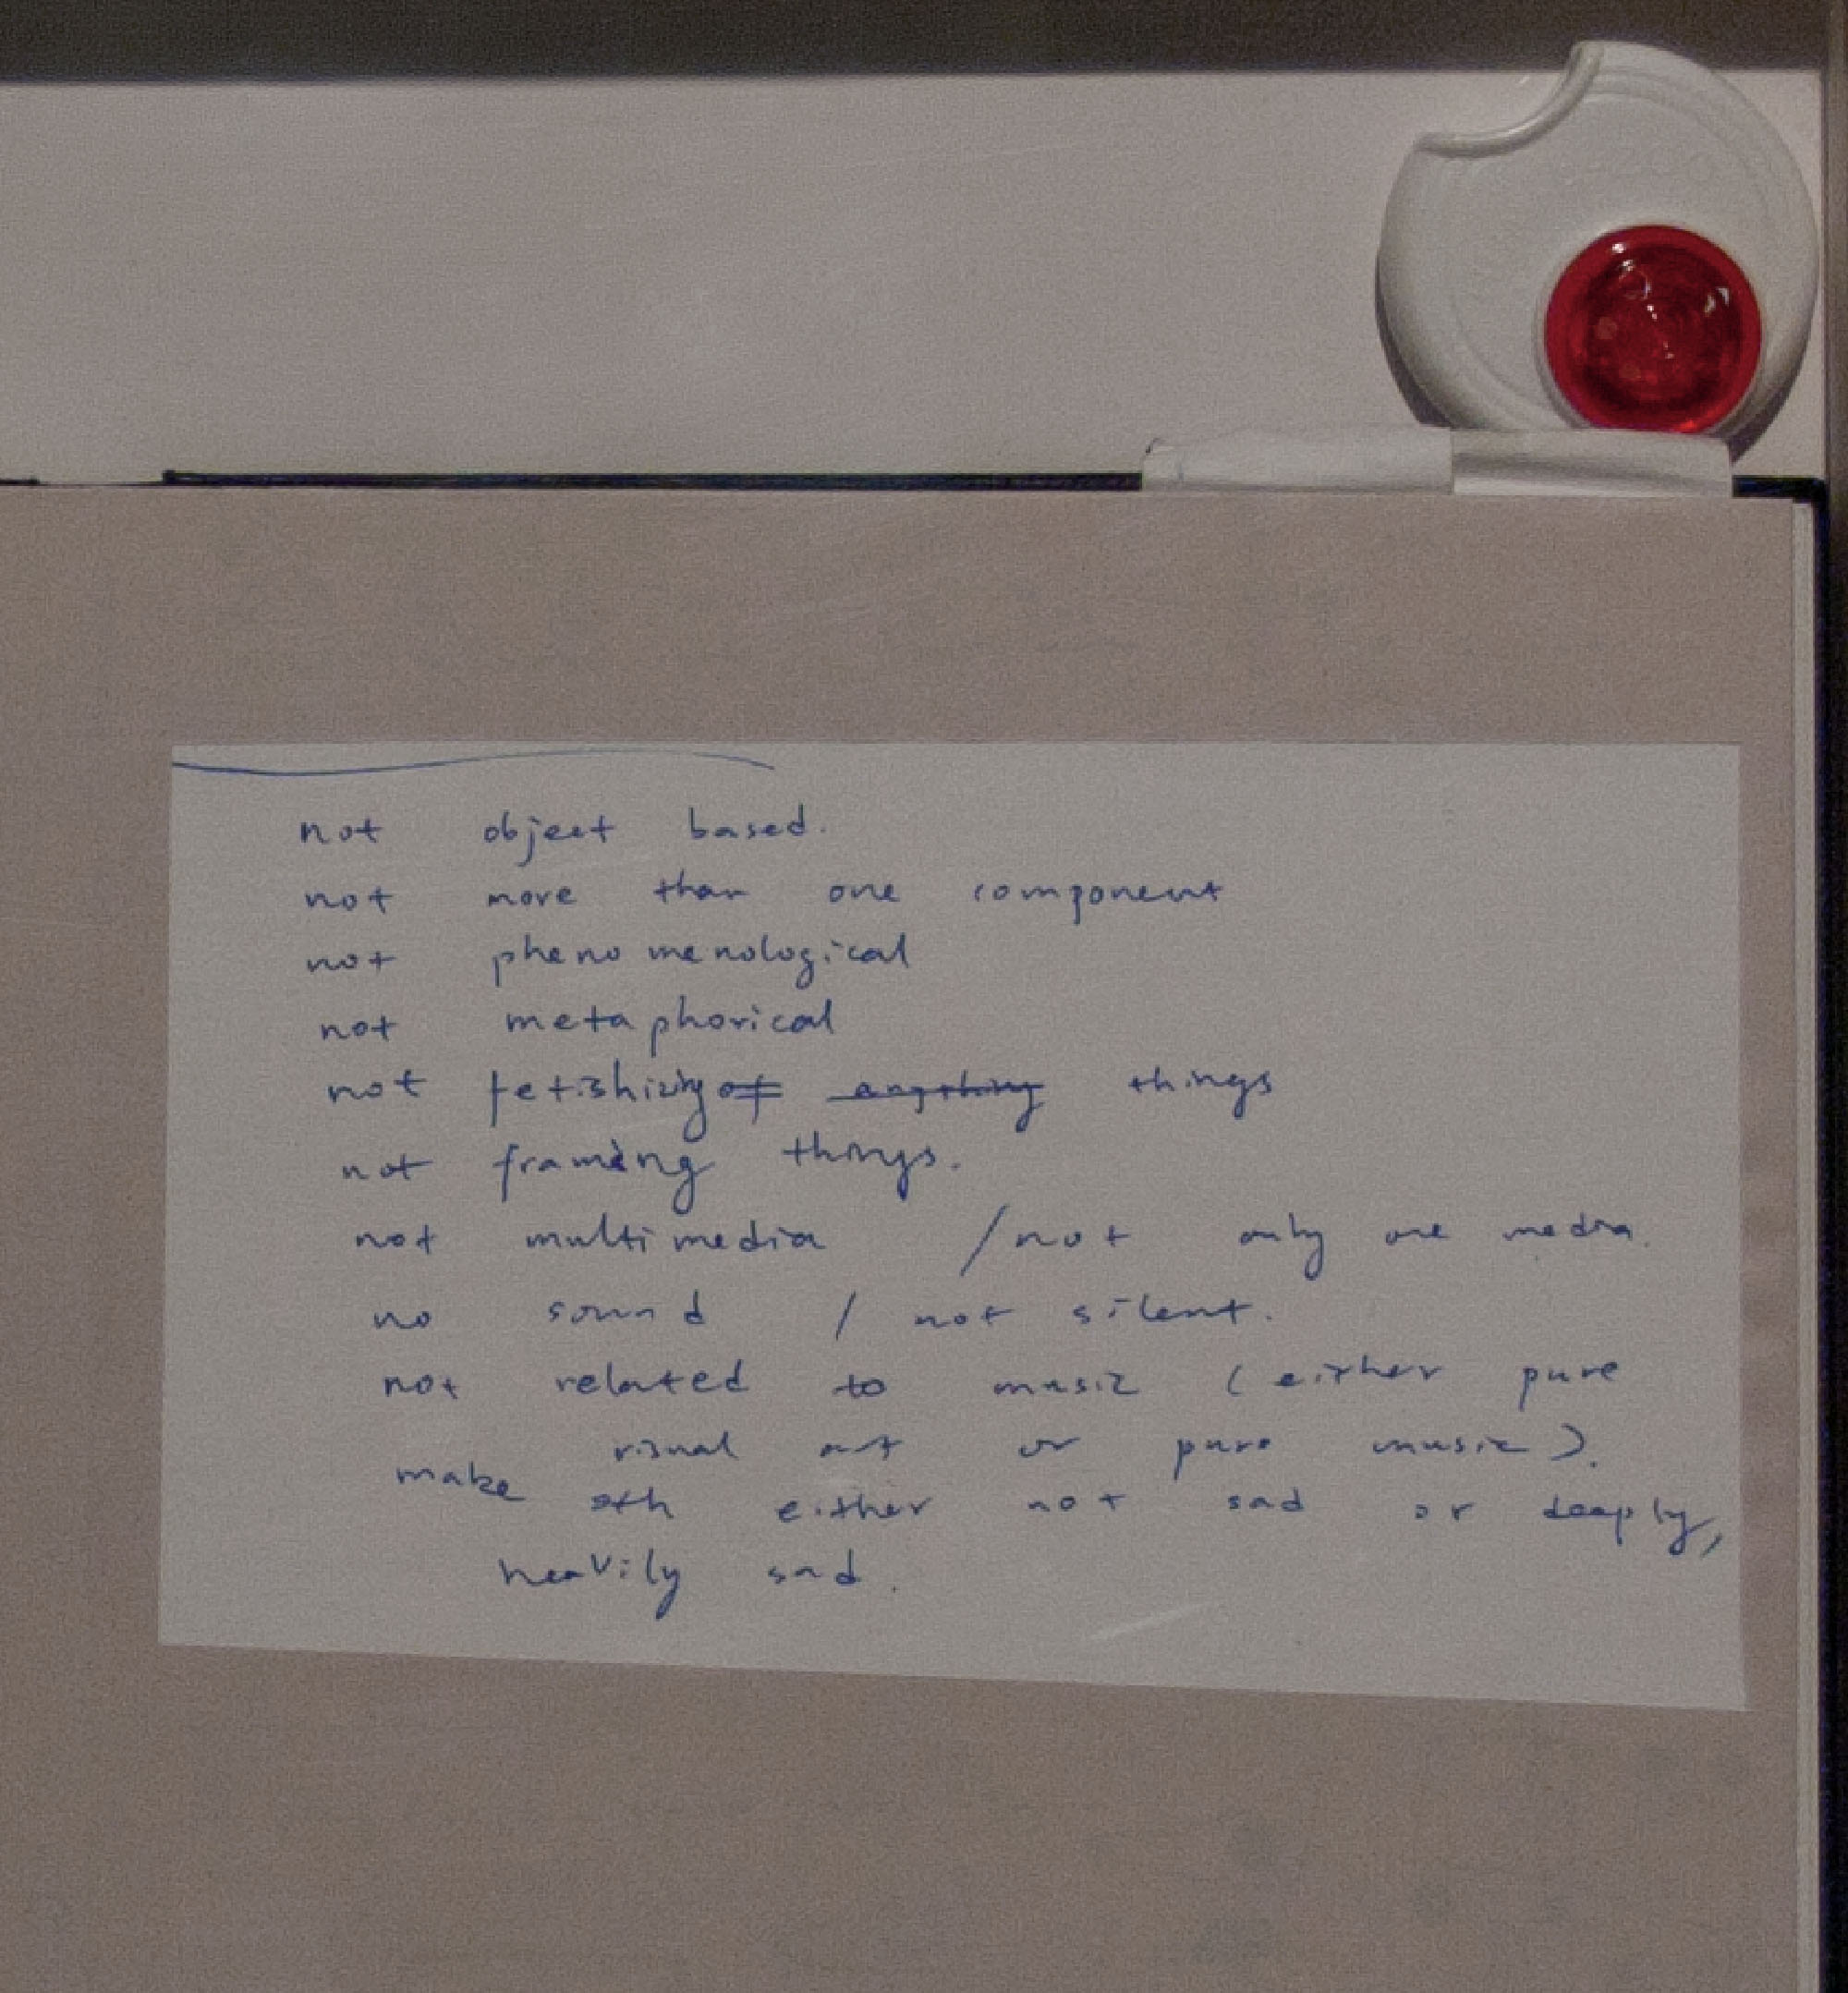 not object based.
not more than one component
not phenomenological
not metaphorical
not fetishizing of anything things
not framing things.
not multimedia / not only one media.
no sound / not silent.
not related to music (either pure
visual art or pure music).
make sth either not sad or deeply,
heavily sad.